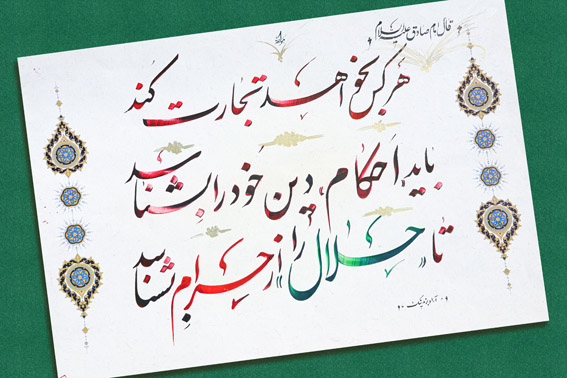 قال امام صادق علیه السلام
هر کس بخواهد تجارت کند
باید احکام دین خود را بشناسد
تا «حلال» را از حرام بشناسد